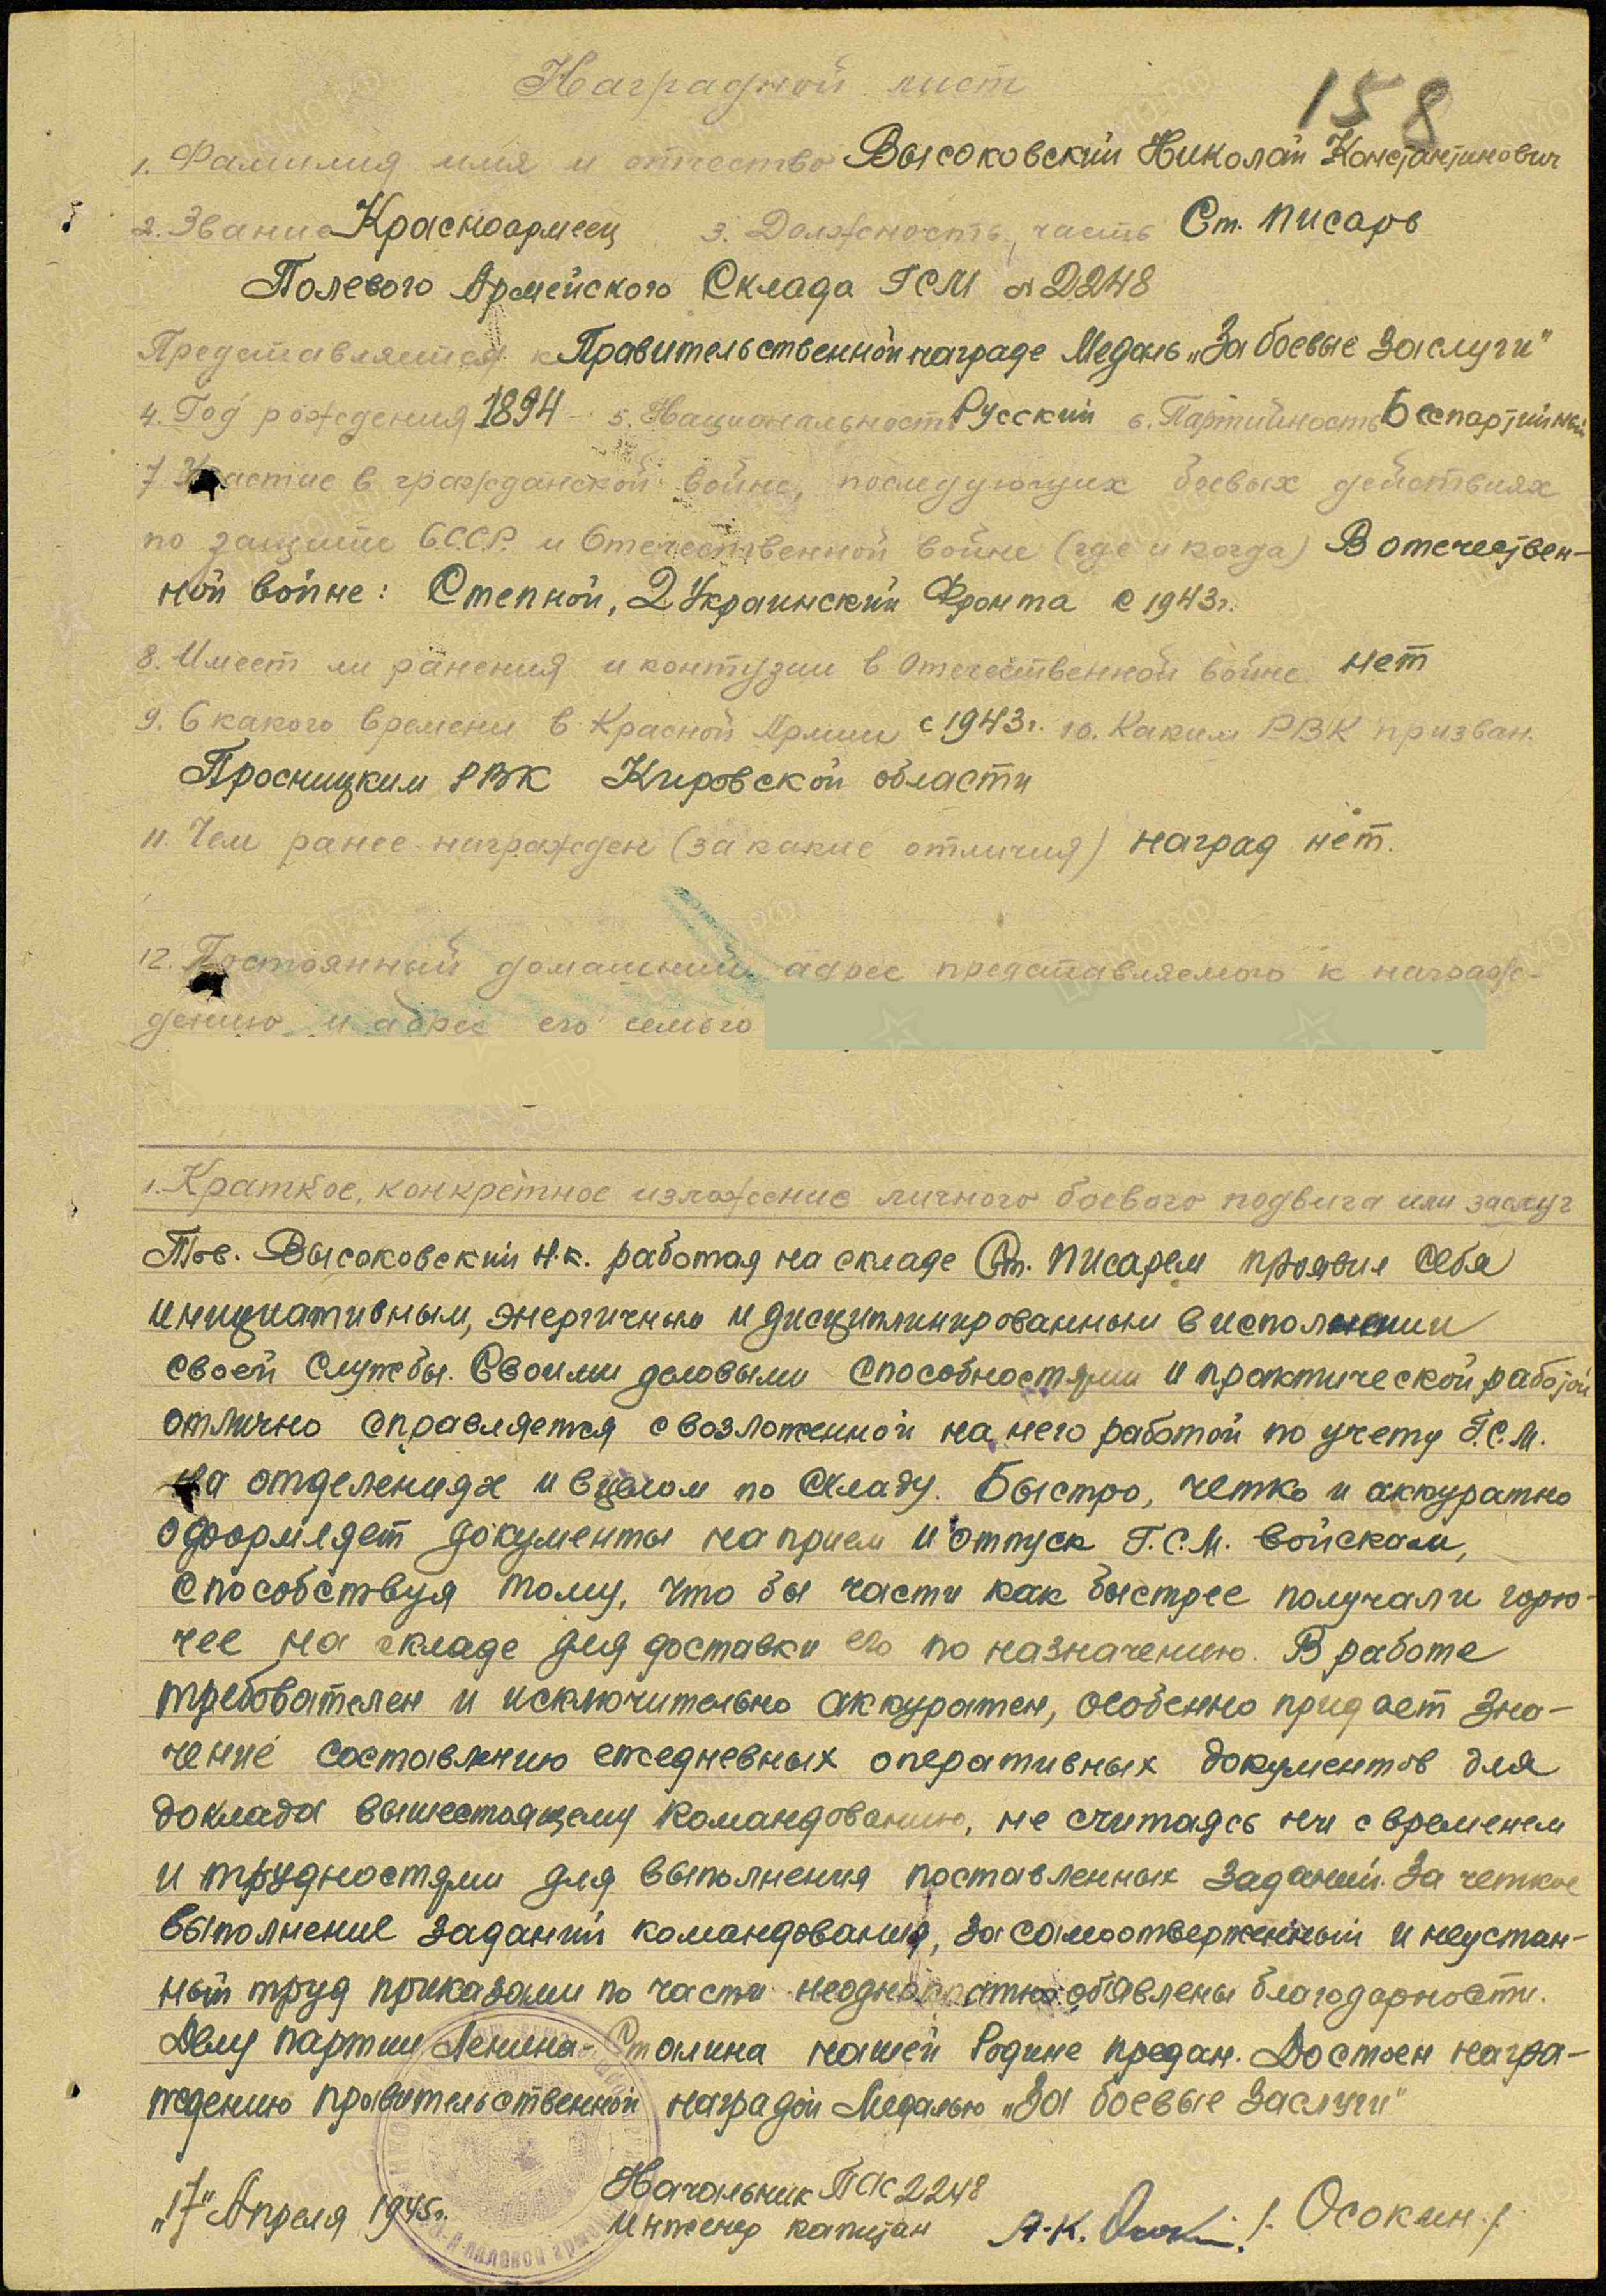 Наградной лист
158
1. Фамилия имя и отчество Высоковский Николай Константинович
2. Звание Красноармеец 3. Должность, часть Ст. писарь
Полевого Армейского Склада ГСМ № 2248
Представляется к Правительственной награде Медаль „За боевые заслуги"
4. Год рождения 1894 5. Национальность Русский 6. Партийность Беспартийный
7 Участие в гражданской войне, последующих боевых действиях
по защите С.С.С.Р. и Отечественной войне (где и когда) В отечествен-
ной войне: Степной, 2 Украинский Фронта с 1943г.
8. Имеет ли ранения и контузии в Отечественной войне. нет
9. С какого времени в Красной Армии с 1943г. 10. Каким РВК призван.
Просницким РВК Кировской области
11. Чем ранее награжден (за какие отличия) наград нет.
12. Постоянный домашний адрес представляемого к награж-
дению и адрес его семьи
1. Краткое, конкретное изложение личного боевого подвига или заслуг
Тов. Высоковский Н.К. работая на складе Ст. писарем проявил себя
инициативным, энергичным и дисциплинированным в исполнении
своей службы. Своими деловыми способностями и практической работой
отлично справляется с возложенной на него работой по учету Г.С.М.
на отделениях и в целом по складу. Быстро, четко и аккуратно
оформляет документы на прием и отпуск Г.С.М. войскам,
способствуя тому, что бы части как быстрее получали горю-
чее на складе для доставки его по назначению. В работе
требователен и исключительно аккуратен, особенно придает зна-
чение составлению ежедневных оперативных документов для
доклада вышестоящему командованию, не считаясь ни с временем
и трудностями для выполнения поставленных заданий. За четкое
выполнение заданий командования, за самоотверженный и неустан-
ный труд приказами по части неоднократно объявлены благодарности.
Делу партии Ленина-Сталина нашей Родине предан. Достоен награ-
ждению правительственной наградой Медалью „За боевые заслуги"
„17" Апреля 1945г.
Начальник ПАС 2248
Инженер капитан А.К. /Осокин/